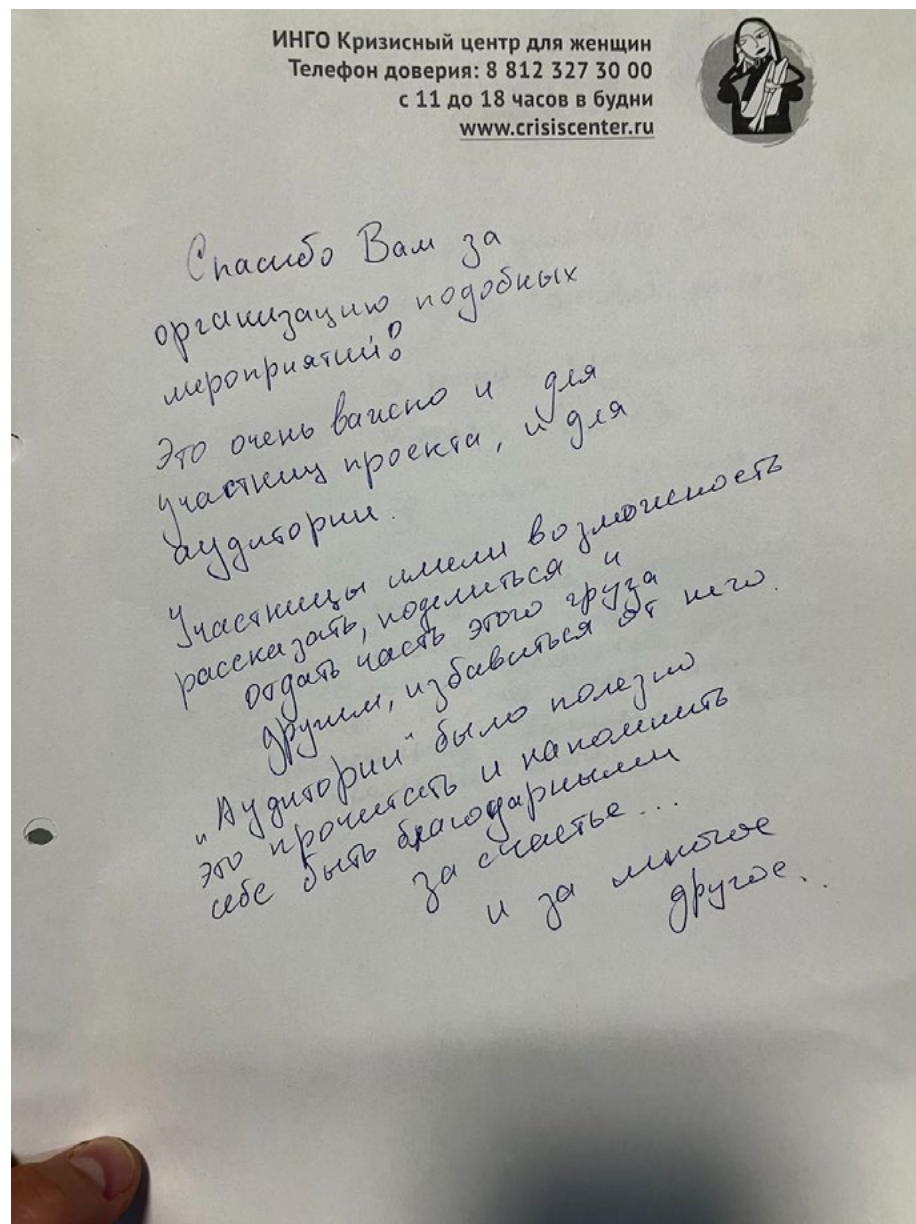 ИНГО Кризисный центр для женщин
Телефон доверия: 8 812 327 30 00
с 11 до 18 часов в будни
www.crisiscenter.ru
Спасибо Вам за
организацию подобных
мероприятий!
Это очень важно и для
участниц проекта, и для
аудитории.
Участницы имели возможность
рассказать, поделиться и
отдать часть этого груза
другим, избавиться от него.
„Аудитории" было полезно
это прочитать и напомнить
себе быть благодарными
за счастье...
и за многое
другое...